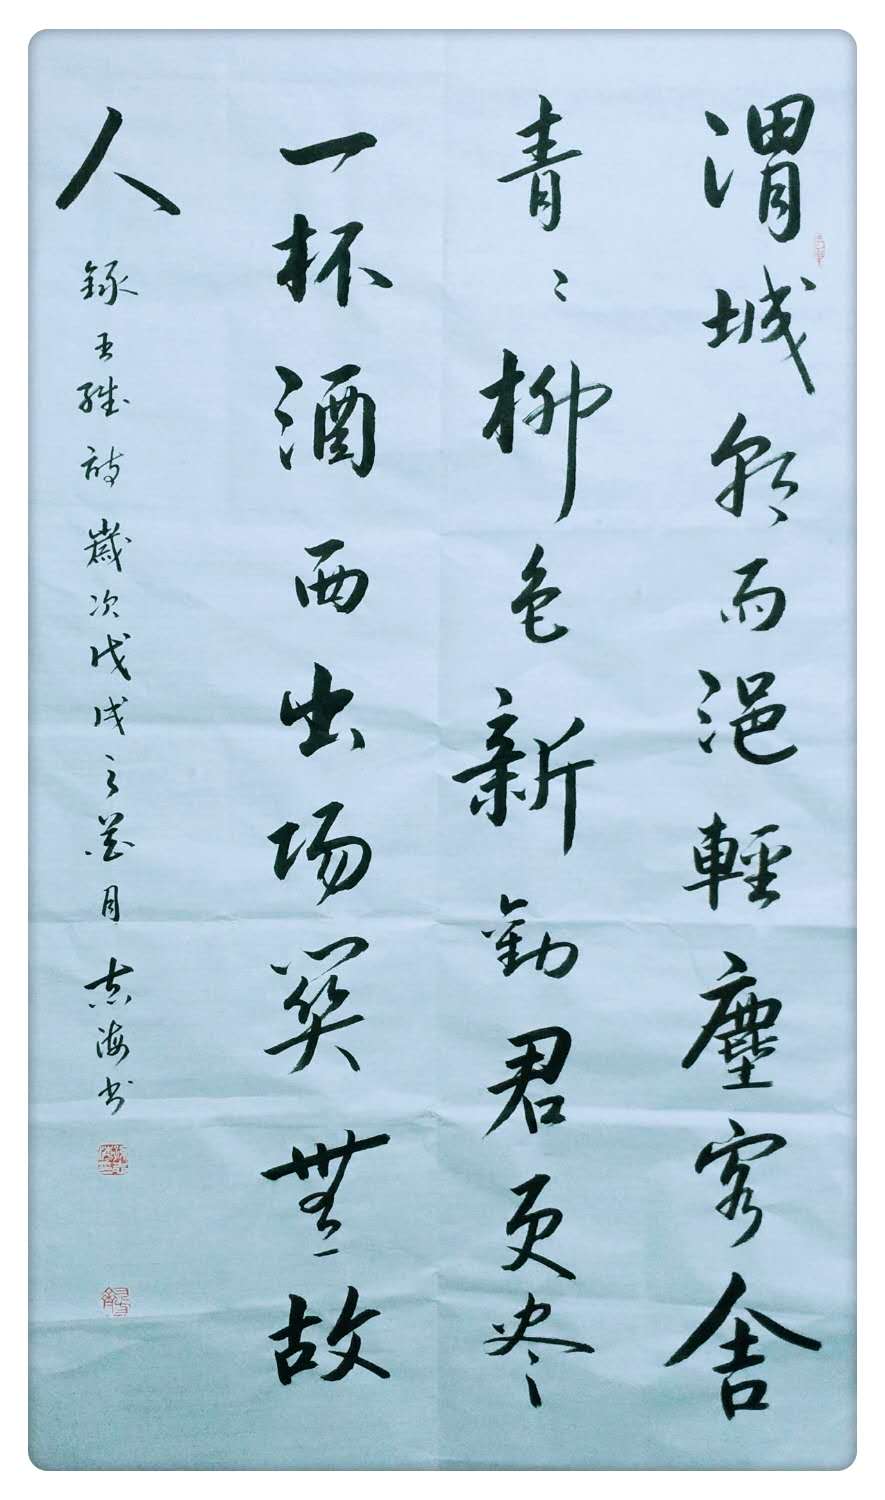 渭城朝雨浥輕塵客舍
青々柳色新勸君更尽
一杯酒西出场関無故
人 錄王維詩 歲次戊戌之月 志海书